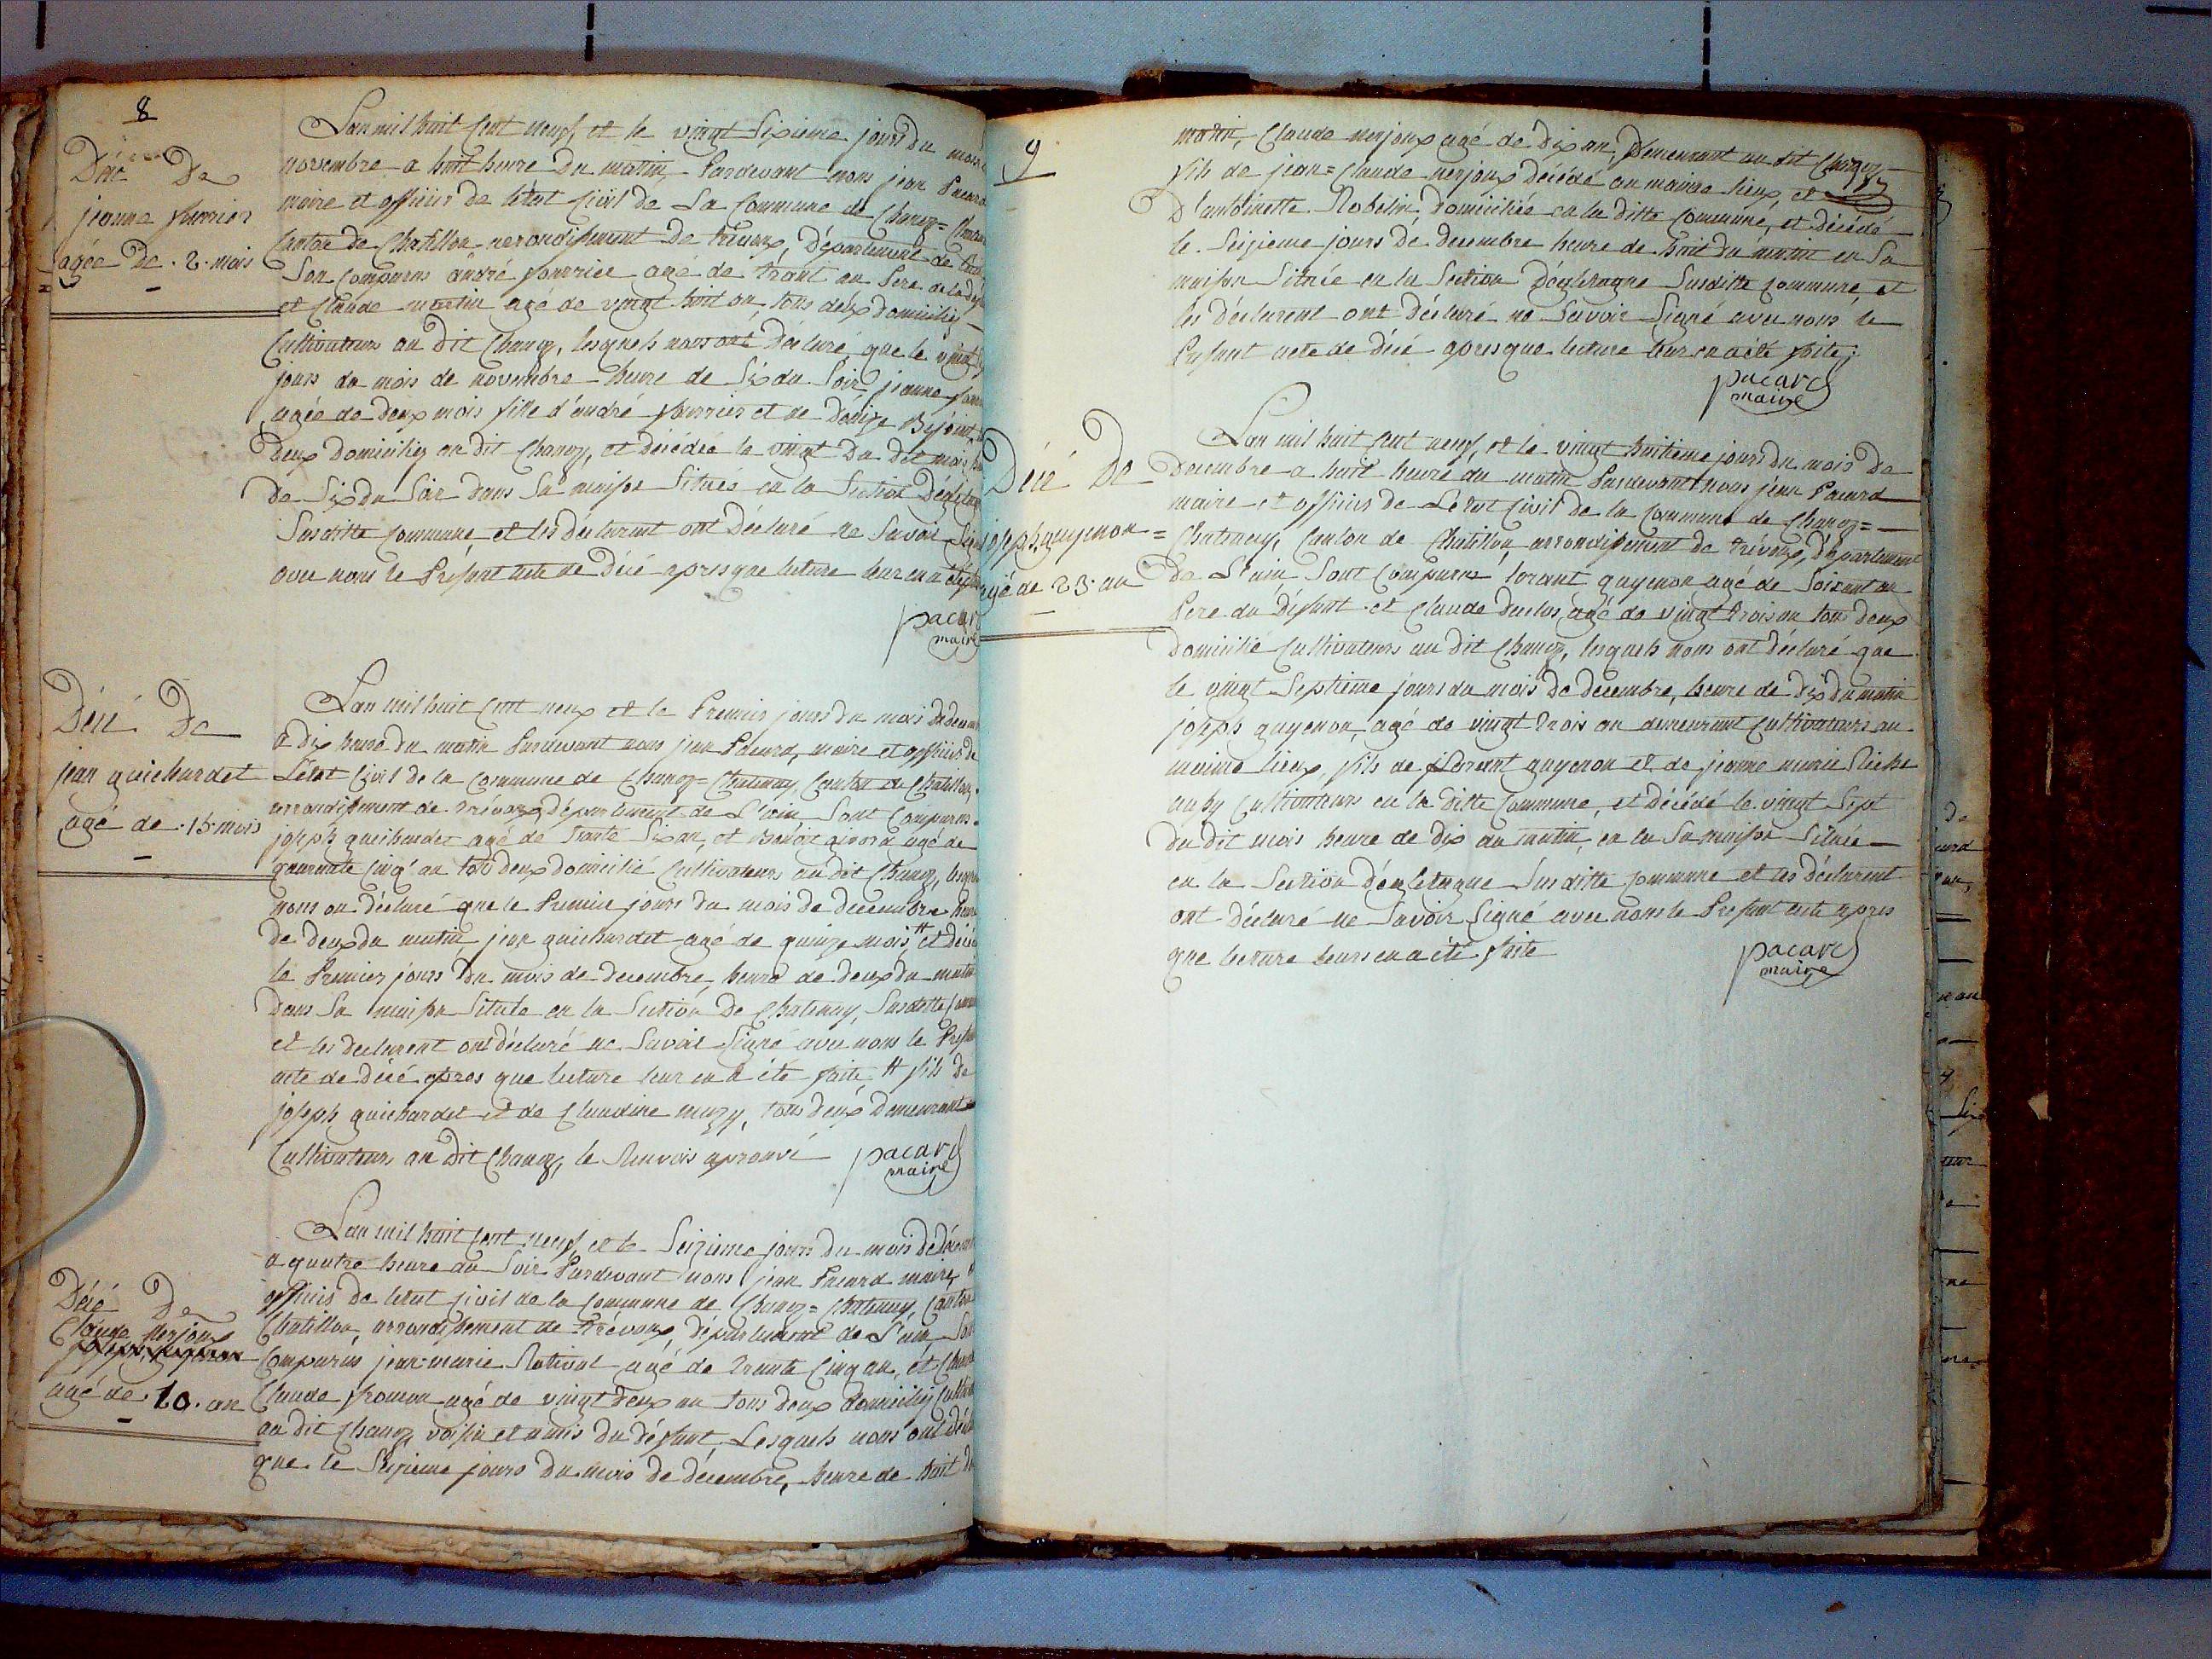 8
Décé De
jeanne fourrier
agée de . 2 . mois
Lan mil huit Cent neuf et le vingt Sixieme jours du mois
novembre a huit heure du matin, Pardevant nous jean Pacard
maire et officier de letat Civil de La Commune de Chanoz =
Canton de Chatillon arrondissement de trévoux, département de
Son Comparus andré fourrier agé de trant an Pere de la
et Claude martin agé de vingt huit an, tous deux domiciliés
Cultivateurs au dit Chanoz, lesquels nous ont Déclaré que le vingt
jours du mois de novembre heure de Six du Soir jeanne
agée de deux mois fille d'andré fourrier et de Denize
Deux Domiciliés au dit Chanoz, et décédée le vingt du dit mois
de Six du Soir dans Sa maison Située en la Section
Susditte Commune, et les déclarant ont Déclaré ne Savoir
avec nous le Present acte de Décé apres que lecture leur en a
pacard
maire
Décé De
jean guichardet
agé de . 15 . mois
Lan mil huit Cent neux et le Premier jours du mois de
a dix heure du matin Pardevant nous jean Pacard, maire et officier de
Létat Civil de la Commune de Chanoz = Chatenay, Canton de Chatillon,
arrondissement de trévoux, département de L'ain, Sont Comparus
joseph guichardet agé de trante Six an, et agé de
quarante Cinq an tous deux domicilié Cultivateurs au dit Chanoz,
nous on déclaré que le Premier jours du mois de decembre heure
de deux du matin, jean guichardet agé de quinze mois # et
le Premier jours du mois de decembre, heure de deux du matin
dans Sa maison Située en la Section De Chatenay, Susditte
et les declarent ont déclaré ne Savoir Signé avec nous le
acte de décé apres que lecture leur en a été faite, # fils de
joseph guichardet et de Claudine muzy, tous deux demeurant
Cultivateurs au dit Chanoz, le Renvois aprouvé
pacard
maire
Décé De
Claude Nerjoux
agé de . 10 . an
Lan mil huit Cent neuf, et le Seizieme jours du mois de
a quatre heure du Soir Pardevant nous jean Pacard maire,
officier de letat Civil de la Commune de Chanoz = Chatenay, Canton
Chatillon, arrondissement de trévoux, département de L'ain,
Comparus jean-marie agé de trante Cinq an, et
Claude agé de vingt deux an tous deux domiciliés
au dit Chanoz, voisin et amis du défunt, Lesquels nous ont
que le Seizieme jours du mois de décembre, heure de huit
9
matin, Claude nerjoux agé de dix an, Demeurant au dit Chanoz
fils de jean = Claude nerjoux décédé au maime lieux, et
D'antoinette Robelin, domiciliés en la ditte Commune, et décédé
le Seizieme jours de decembre heure de huit du matin en Sa
maison Située en la Section Susditte Commune, et
les déclarent ont déclaré ne Savoir Signé avec nous le
Present acte de décé apres que lecture leur en a été faite;
pacard
maire
Décé De
joseph guyenon =
agé de 23 . an
Lan mil huit Cent neuf, et le vingt huitieme jours du mois de
decembre a huit heure du matin Pardevant nous jean Pacard
maire et officier de L'état Civil de la Commune de Chanoz =
Chatenay, Canton de Chatillon arrondissement de trévoux, département
de L'ain Sont Comparus lorant guyenon agé de Soixant an
Pere du défunt et Claude duclos, agé de vingt trois an tous deux
domicilié Cultivateurs au dit Chanoz, lesquels nous ont déclaré que
le vingt Septieme jours du mois de decembre, heure de dix du matin
joseph guyenon, agé de vingt trois an demeurant Cultivateurs au
maime lieux, fils de guyenon et de jeanne marie
Cultivateurs en la ditte Commune, et décédé le vingt Sept
du dit mois heure de dix du matin, en la Sa maison Située
en la Section Susditte Commune et les déclarent
ont déclaré ne Savoir Signé avec nous le Present acte apres
que lecture leurs en a été faite
pacard
maire